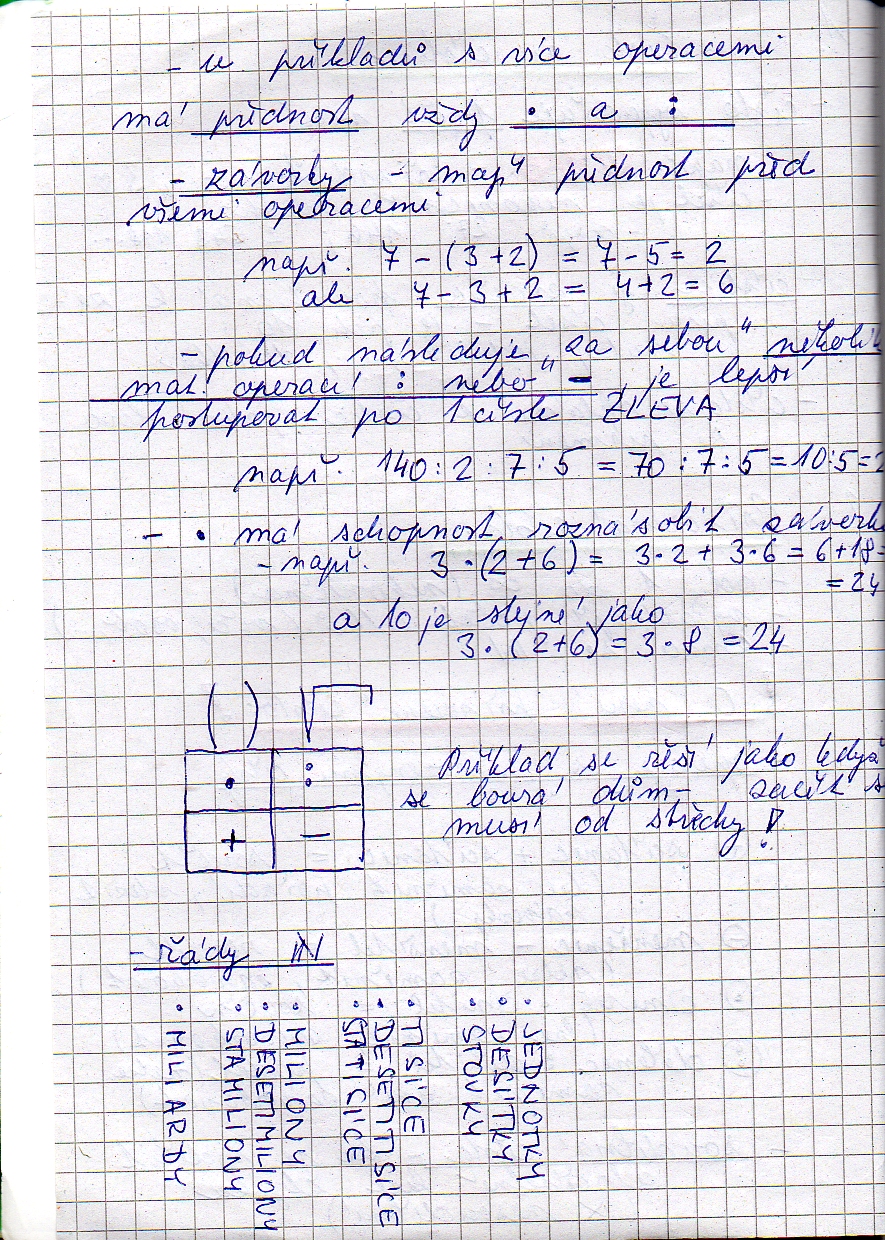 - u příkladů s více operacemi
má přednost vždy • a :
- závorky - mají přednost před
všemi operacemi
např. 7 - (3+2) = 7-5 = 2
ale 7-3+2 = 4+2 = 6
- pokud následuje „za sebou“ několik
mat. operací : nebo -, je lepší
postupovat po 1 čísle ZLEVA
např. 140:2:7:5 = 70:7:5=10:5=2
- • má schopnost roznásobit závorku
- např. 3•(2+6) = 3•2 + 3•6 = 6+18=
= 24
a to je stejné jako
3•(2+6) = 3•8 = 24
( ) √
• :
+ −
Příklad se řeší jako když
se bourá dům - začít s
musí od střechy!
- řády ℕ
• MILIARDY
• STAMILIONY
• DESETIMILIONY
• MILIONY
• STATISÍCE
• DESETITISÍCE
• TISÍCE
• STOVKY
• DESÍTKY
• JEDNOTKY